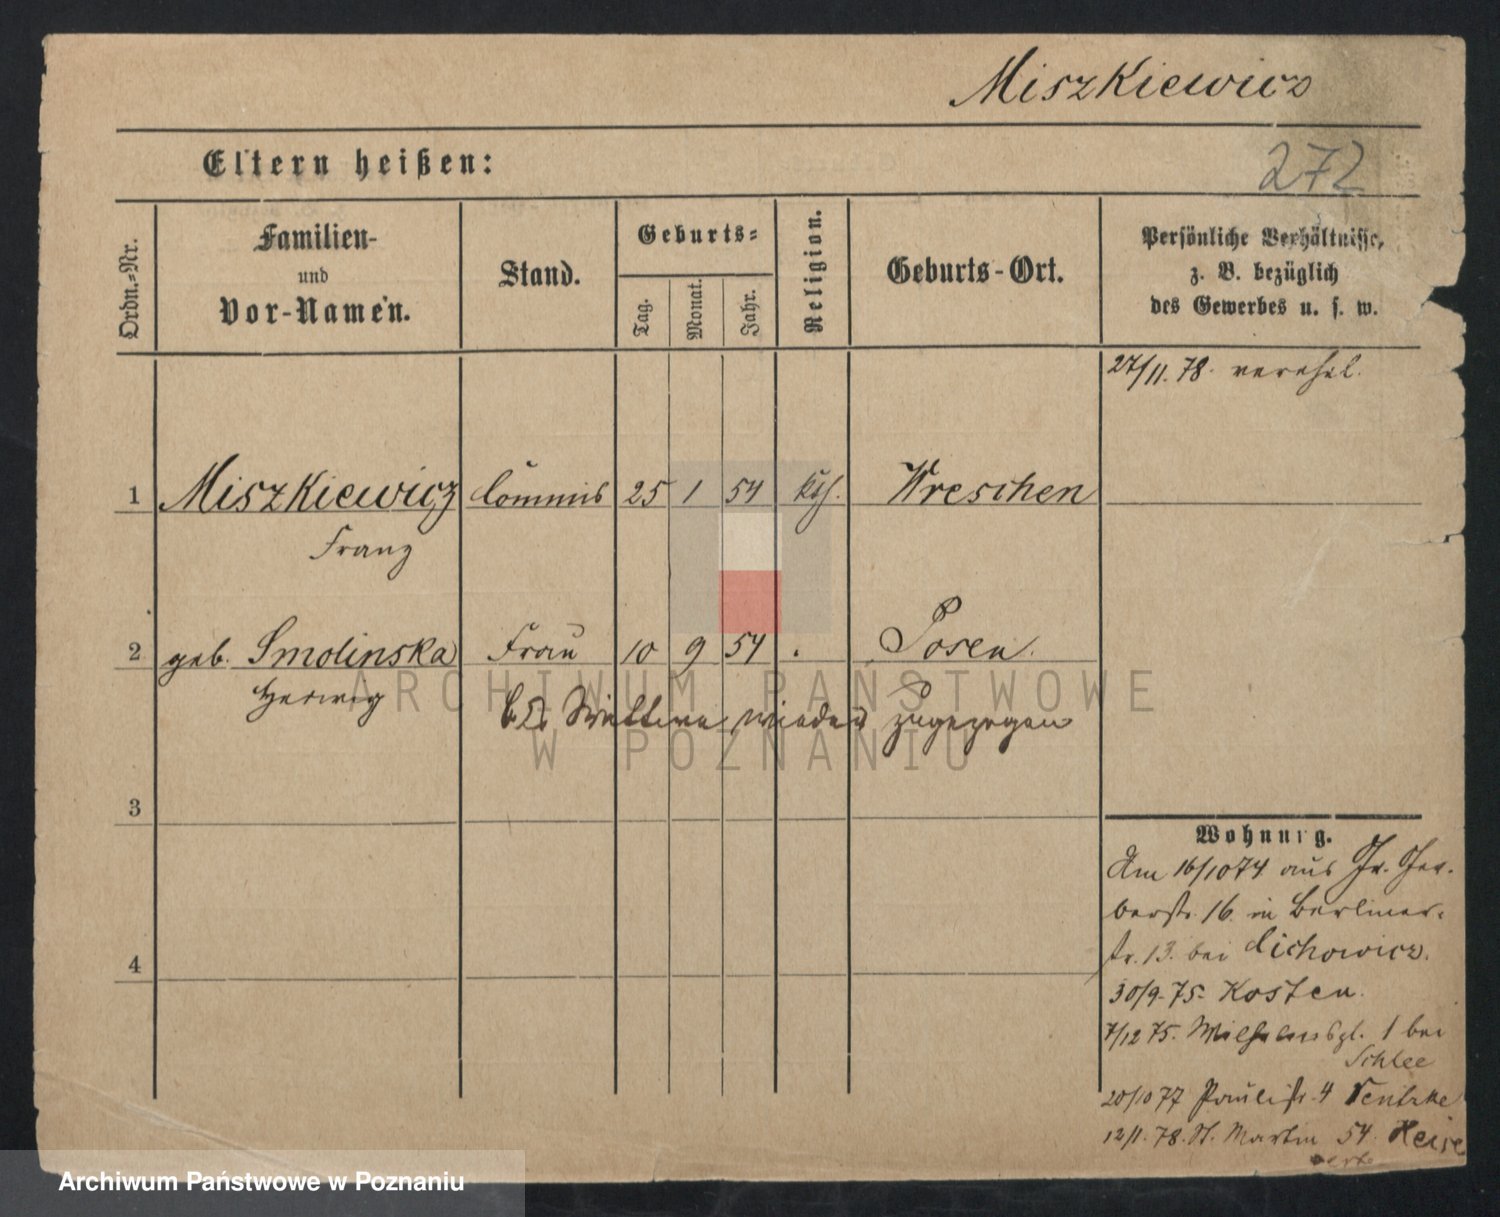 Miszkiewicz
272
Eltern heißen:
Ordn.-Nr.
Familien-
und
Vor-Namen.
Stand.
Geburts-
Tag.
Monat.
Jahr.
Religion.
Geburts-Ort.
Persönliche Verhältnisse,
z. B. bezüglich
des Gewerbes u. s. w.
27/11. 78. verehel.
1 Miszkiewicz Commis 25 1 54 kth. Wreschen
Franz
2 geb. Smolinska Frau 10 9 54 Posen.
Hedwig
wieder zugezogen
3
4
Wohnung.
Am 16/10 74 aus Gr. Ger-
berstr. 16. in Berliner-
str. 13. bei Cichowicz.
30/9. 75. Kosten.
7/12 75. Wilhelmspl. 1 bei
Schlee
20/10 77 Paulistr. 4 Ventzke
12/11. 78. St. Martin 54.
ARCHIWUM PAŃSTWOWE
W POZNANIU
Archiwum Państwowe w Poznaniu